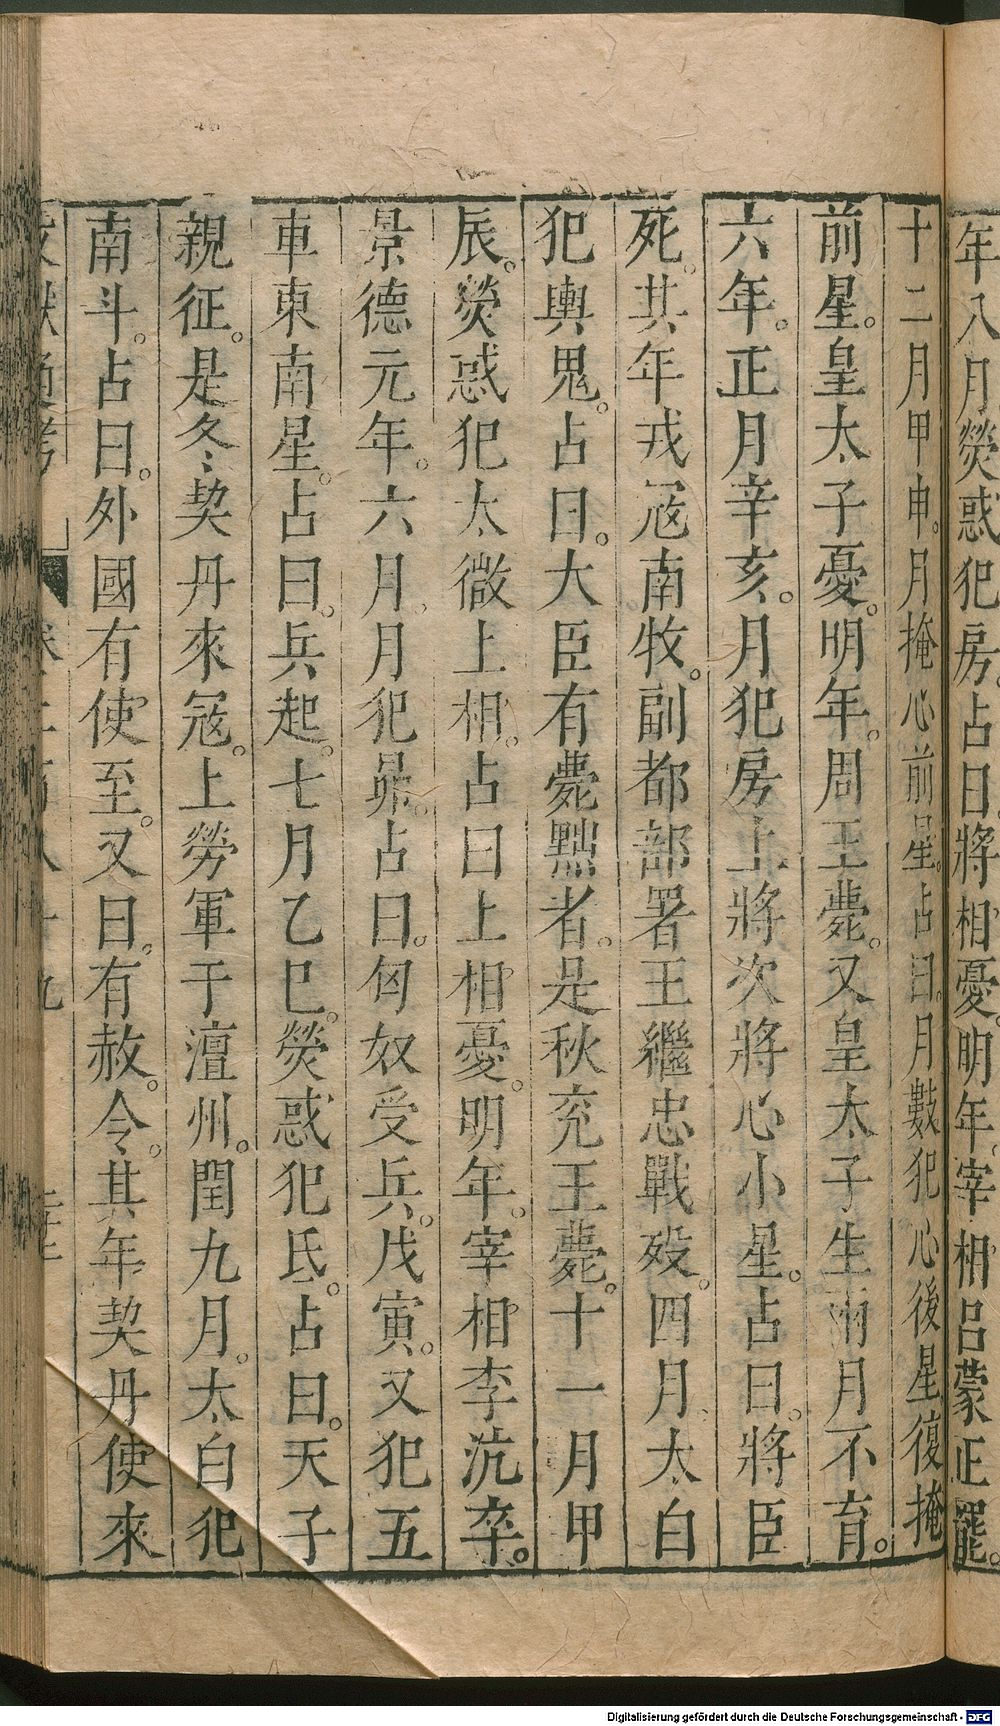 年八月熒惑犯房。占曰將相憂。明年。宰相呂蒙正罷。
十二月甲申。月掩心前星。占曰。月數犯心後星復掩
前星。皇太子憂。明年。周王薨。又皇太子生兩月不育。
六年。正月辛亥。月犯房上將次將心小星。占曰。將臣
死。其年戎寇南牧。副都部署王繼忠戰歿。四月。太白
犯輿鬼。占曰。大臣有薨黜者。是秋兖王薨。十一月甲
辰。熒惑犯太微上相。占曰上相憂。明年。宰相李沆卒。
景德元年。六月。月犯昴。占曰。匈奴受兵。戊寅。又犯五
車東南星。占曰。兵起。七月乙巳。熒惑犯氐。占曰。天子
親征。是冬契丹來寇。上勞軍于澶州。閏九月。太白犯
南斗。占曰。外國有使至。又曰。有赦。令。其年契丹使來